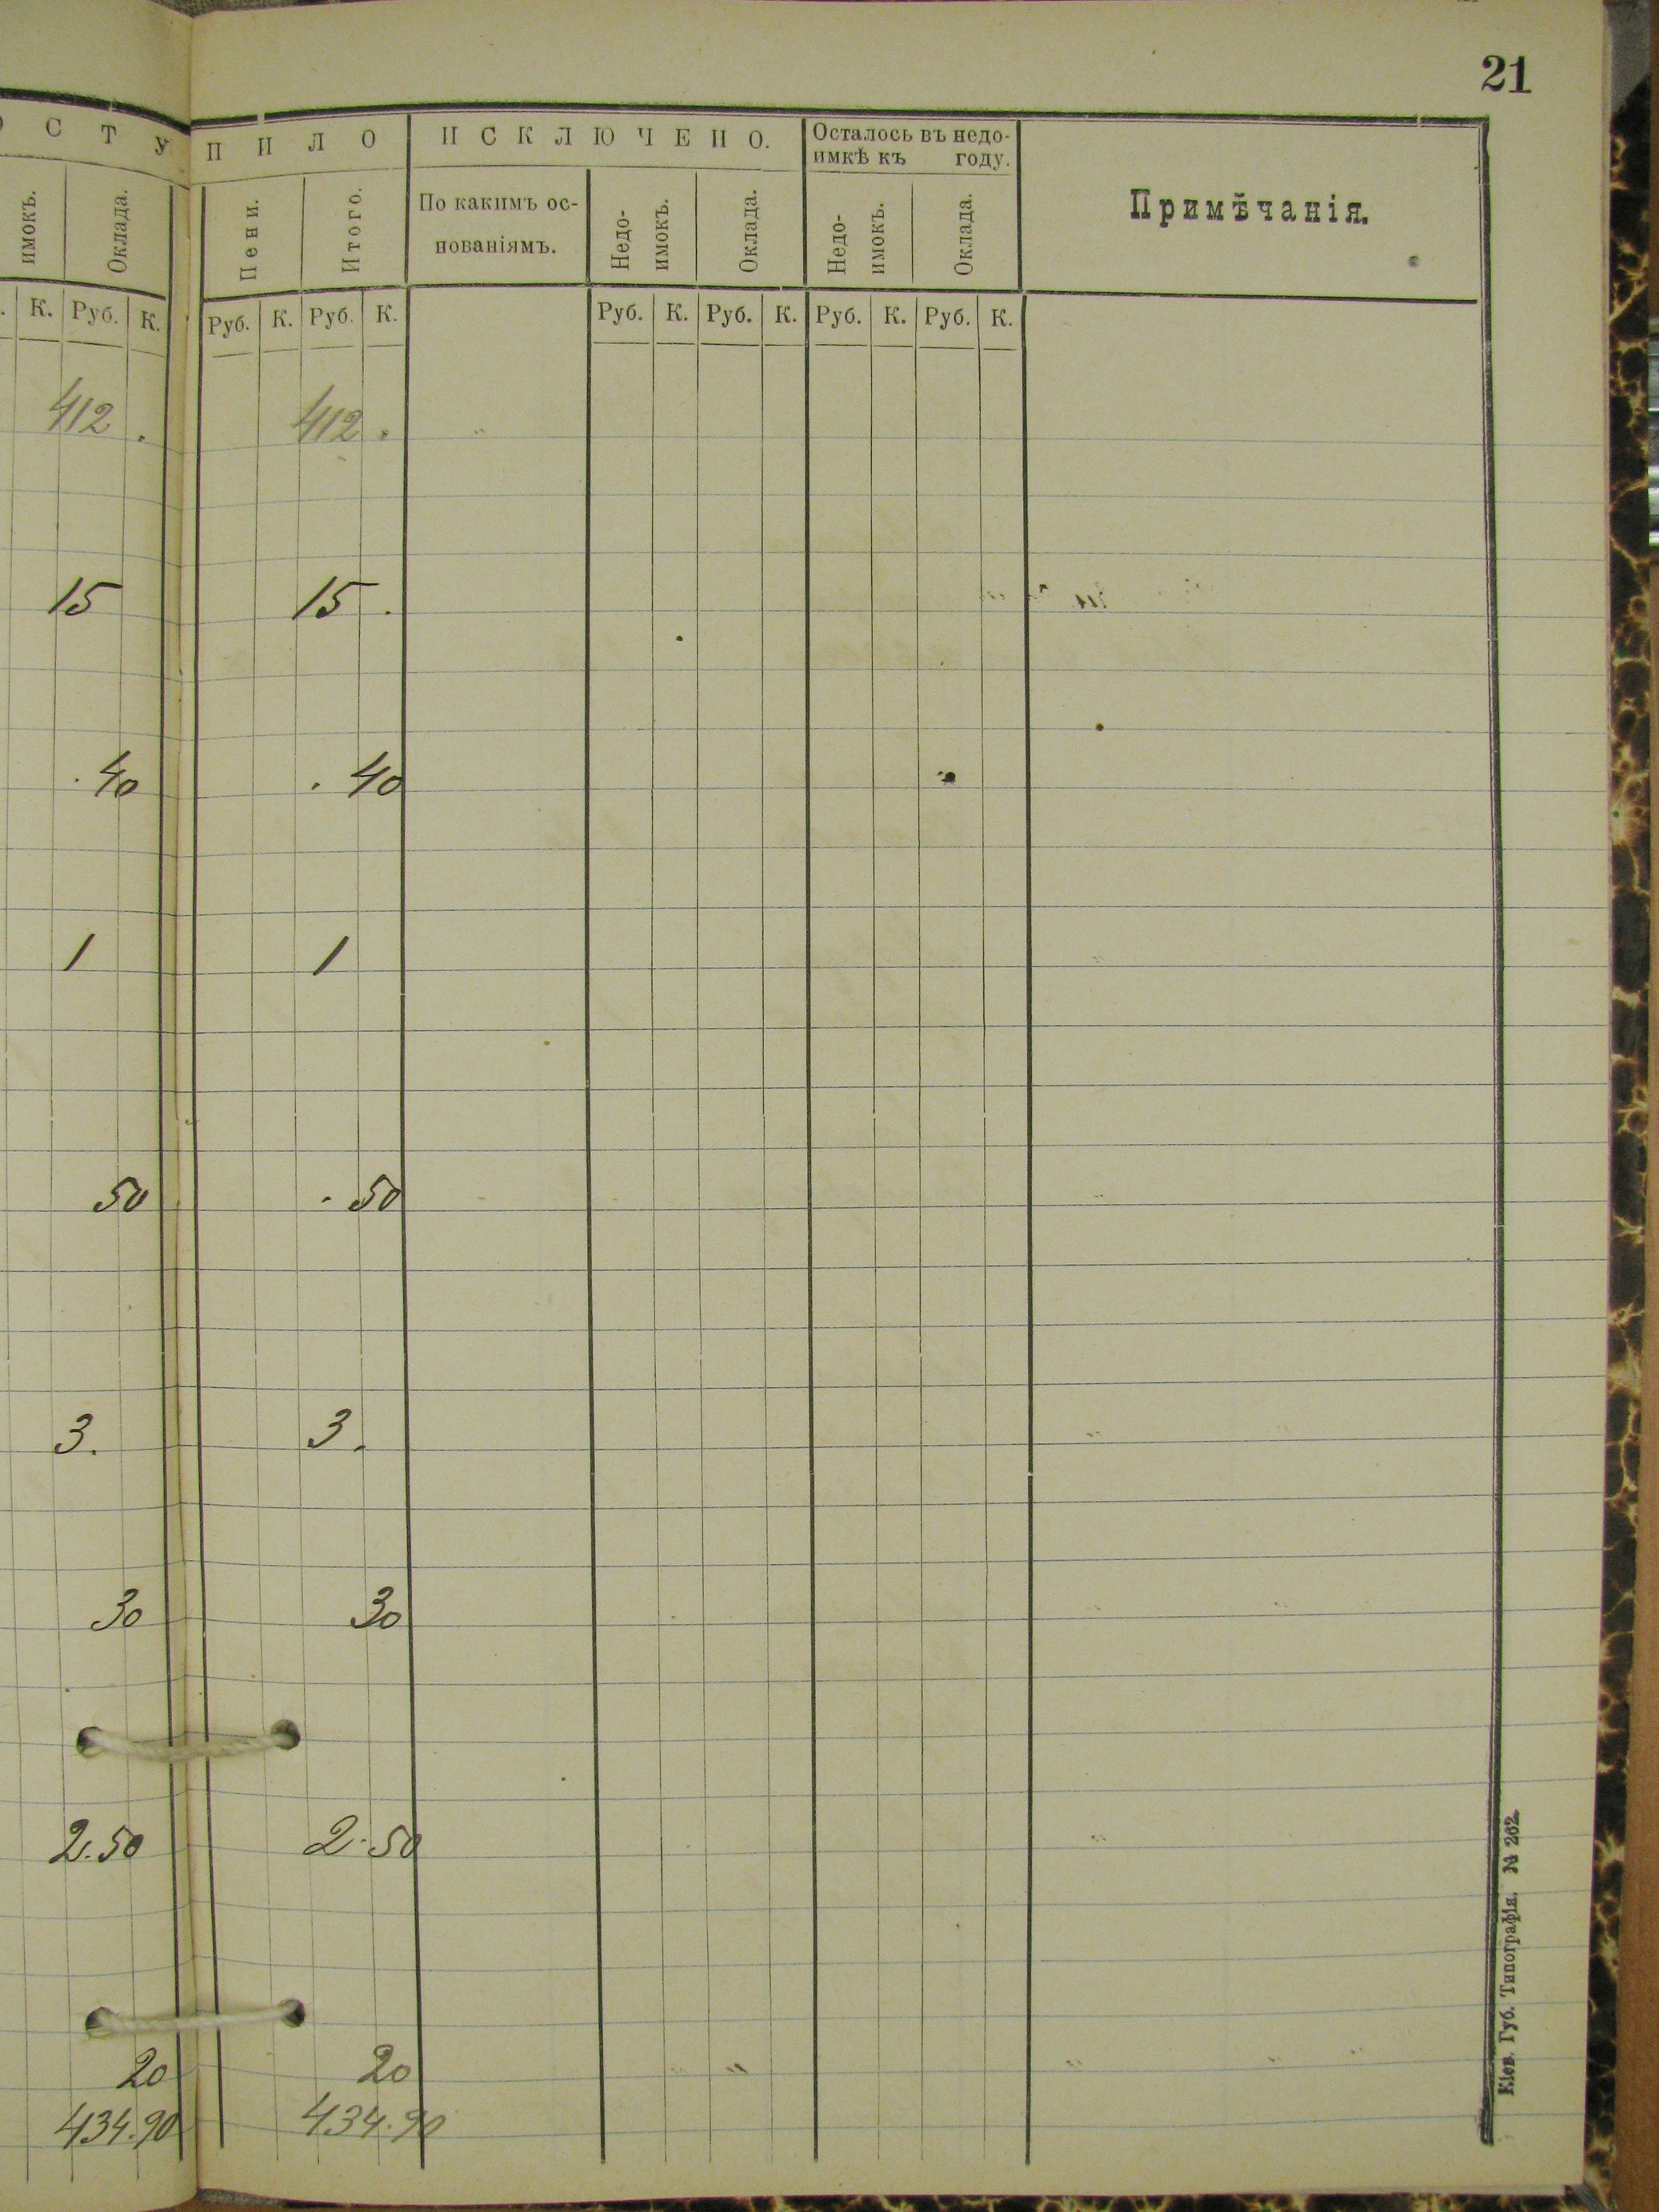 21
О С Т У П И Л О
И С К Л Ю Ч Е Н О.
Осталось въ недо-
имкѣ къ году.
Примѣчанія.
имокъ.
Оклада.
Пени.
Итого.
По какимъ ос-
нованіямъ.
Недо-
имокъ.
Оклада.
Недо-
имокъ.
Оклада.
. К. Руб. К. Руб. К. Руб. К. Руб. К. Руб. К. Руб. К. Руб. К.
412 . 412 .
15 15 .
. 40 . 40
1 1
50 . 50
3. 3.
30 30
2.50 2.50
20 20 "
434.90 434.90
Кіев. Губ. Типографія. № 262.